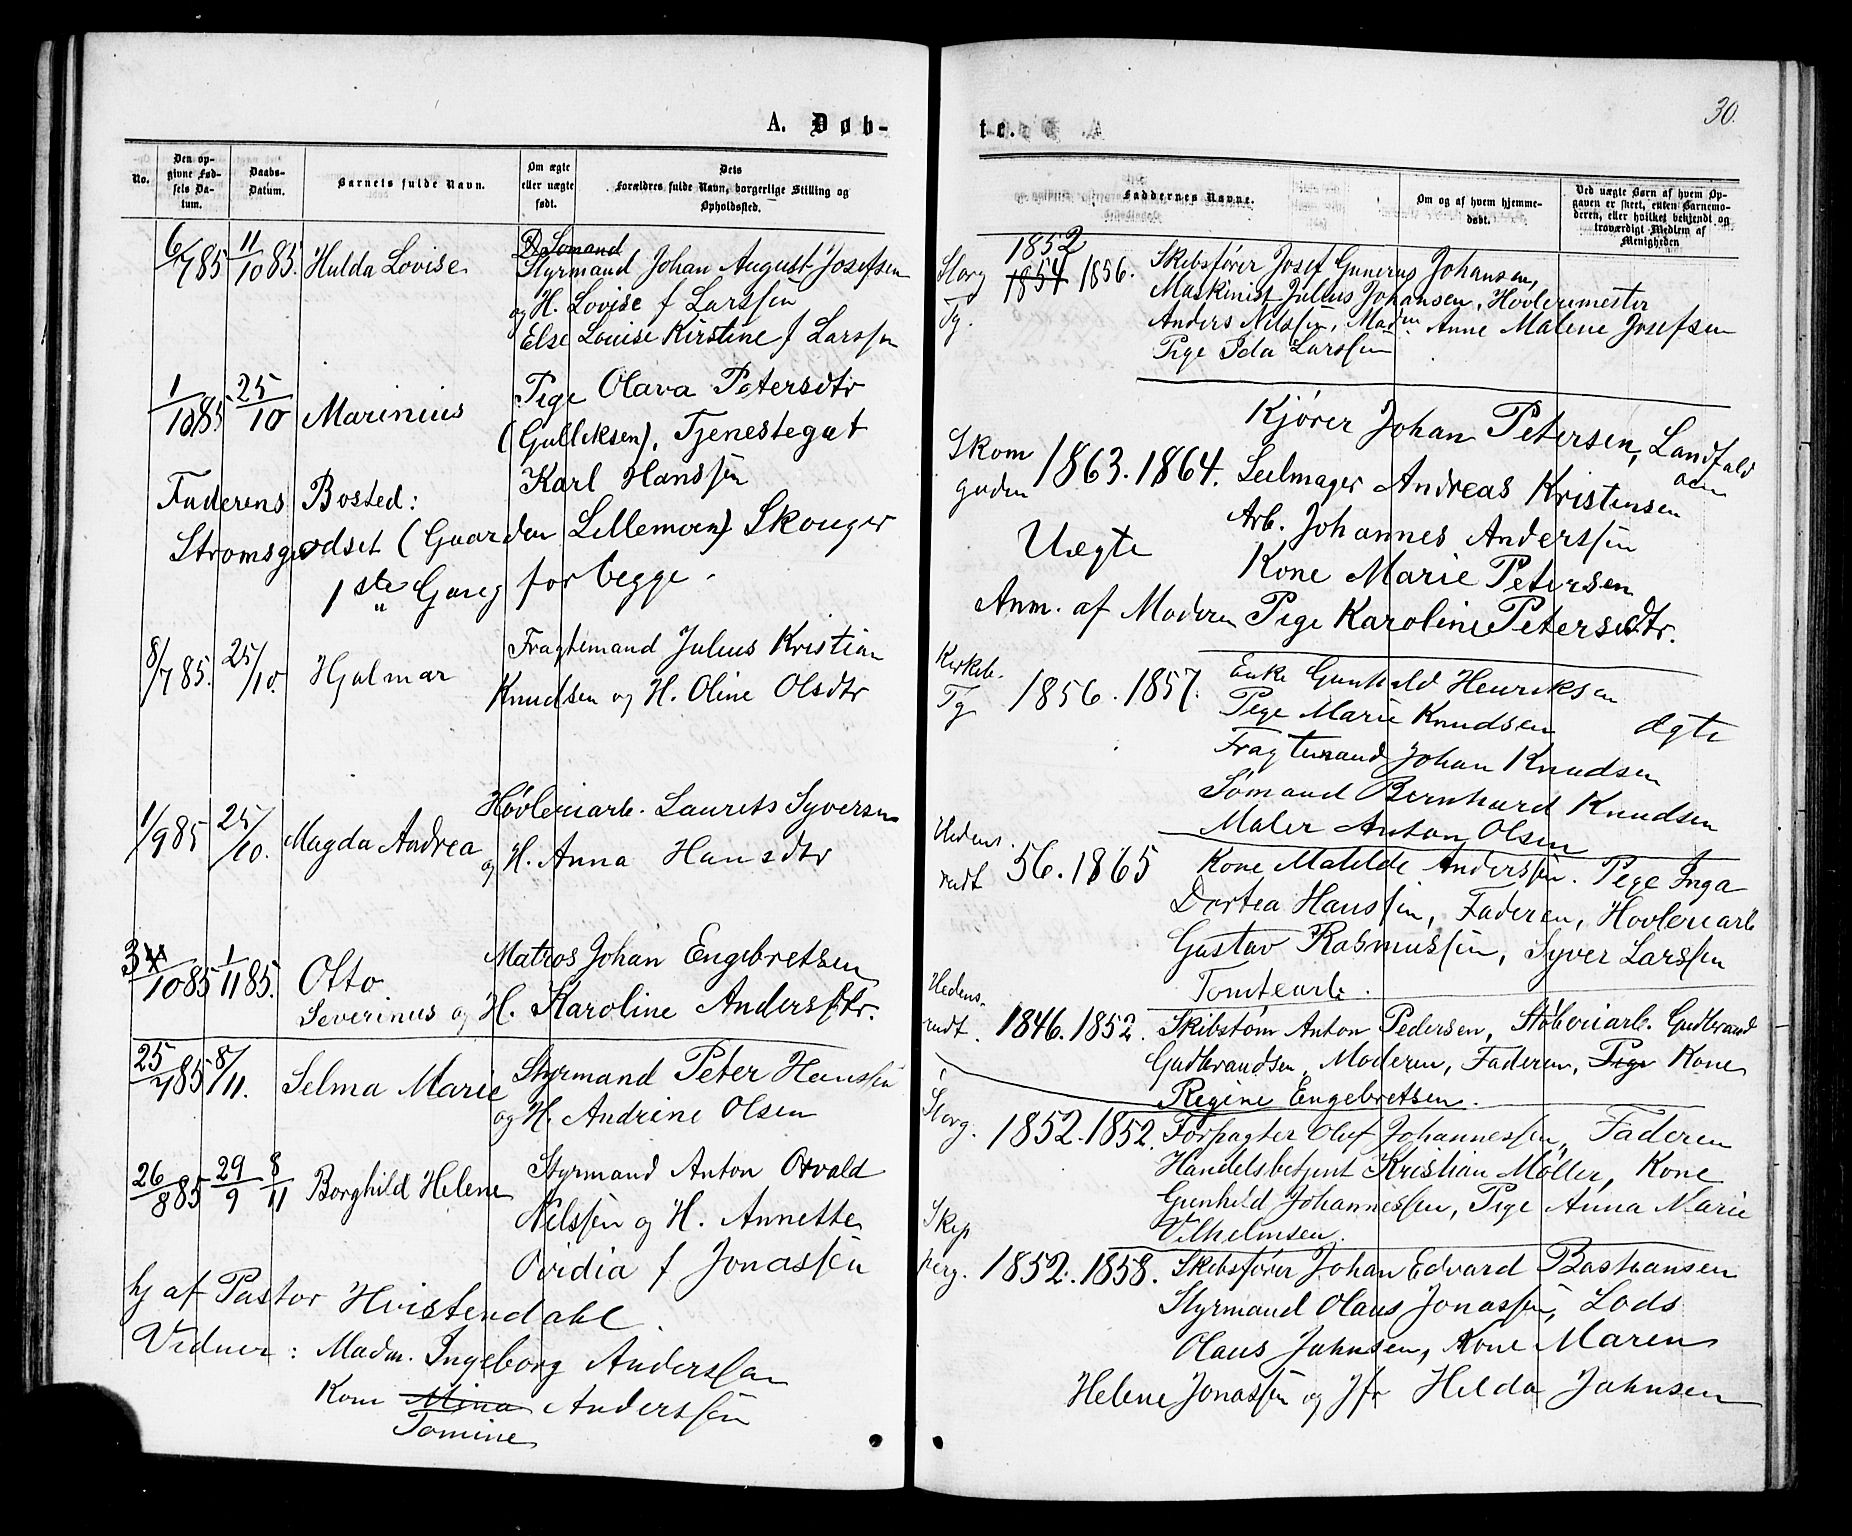 A. Døb-
No.
Den op-
givne Fød-
sels Da-
tum.
Daabs-
Datum.
Barnets fulde Navn.
Om ægte
eller uægte
født.
Dets
Forældres fulde Navn, borgerlige Stilling og
Opholdssted.
6/7 85 11/10 85. Hulda Lovise
Sømand
Styrmand Johan August Josefsen
og H. Lovise f Larssen
Else Louise Kirstine f Larssen
1/10 85 25/10 Marinius
Pige Olava Petersdtr
(Gulliksen), Tjenestegut
Karl Hanssen
Faderens Bosted:
Strømsgodset (Gaarden Lillemoen) Skouger
1ste Gang for begge.
8/7 85. 25/10. Hjalmar
Fragtemand Julius Kristian
Knudsen og H. Oline Olsdtr
1/9 85 25/10. Magda Andrea
Høvleriarb. Laurits Syversen
og H. Anna Hansdtr
3/10 85 1/11 85. Otto
Severinus
Matros Johan Engebretsen
og H. Karoline Andersdtr.
25/7 85 8/11. Selma Marie
Styrmand Peter Hanssen
og H. Andrine Olsen
26/8 85 29/9 8/11 Borghild Helene
Styrmand Anton Osvald
Nilssen og H. Annette
Ovidia f Jonassen
hj af Pastor Hvistendahl.
Vidner: Madm. Ingeborg Anderssen
Kone Mina Anderssen
Tomine
te.
30.
Faddernes Navne.
Om og af hvem hjemme-
døbt.
Ved uægte Børn af hvem Op-
gaven er skeet, enten Barnemo-
deren, eller hvilket bekjendt og
troværdigt Medlem af
Menigheden
Storg
Tg.
1852
1854 1856.
Skibsfører Josef Gunerus Johansen,
Maskinist Julius Johansen, Høvlerimester
Anders Nilssen, Madm Anne Malene Josefsen
Pige Ida Larssen
Skom
gaden
1863. 1864.
Kjører Johan Petersen, Landfald
Seilmager Andreas Kristensen
Arb. Johannes Anderssen
Uægte
Kone Marie Petersen
Anm. af Moderen Pige Karoline Petersdtr.
Kirkeb.
Tg
1856. 1857.
Enke Gunhild Henriksen
Pige Marie Knudsen
Ægte
Fragtemand Johan Knudsen
Sømand Bernhard Knudsen
Maler Anton Olsen
Hedens.
rudt
56. 1865
Kone Matilde Anderssen. Pige Inga
Dortea Hanssen, Faderen, Høvleriarb
Gustav Rasmussen, Syver Larssen
Tomtearb.
Hedens.
rudt.
1846. 1852.
Skibstøm Anton Pedersen, Støberiarb. Gudbrand
Gudbrandsen, Moderen, Faderen, Pige Kone
Regine Engebretsen.
Storg.
1852. 1852.
Forpagter Oluf Johannessen, Faderen
Handelsbetjent Kristian Møller, Kone
Gunhild Johannessen, Pige Anna Marie
Vilhelmsen.
Skip
perg.
1852. 1858.
Skibsfører Johan Edvard Bastiansen
Styrmand Olaus Jonassen, Lods
Olaus Jahnsen, Kone Maren
Helene Jonassen og Jfr Hilda Jahnsen